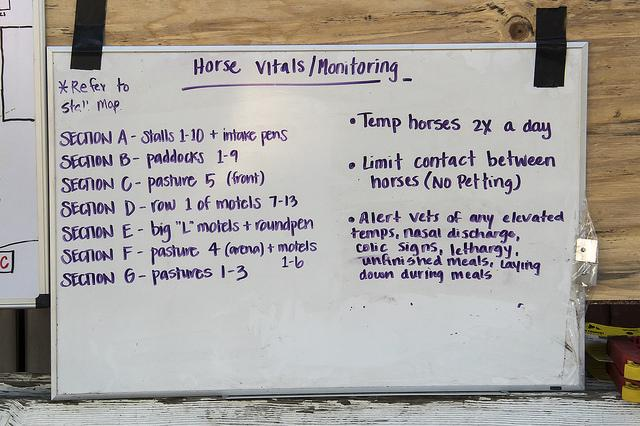 Horse Vitals/Monitoring
*Refer to
stall map
SECTION A - Stalls 1-10 + intake pens
SECTION B - paddocks 1-9
SECTION C - pasture 5 (front)
SECTION D - row 1 of motels 7-13
SECTION E - big "L" motels + roundpen
SECTION F - pasture 4 (arena) + motels
1-6
SECTION G - pastures 1-3
• Temp horses 2X a day
• Limit contact between
horses (No Petting)
• Alert vets of any elevated
temps, nasal discharge,
colic signs, lethargy,
unfinished meals, laying
down during meals
C